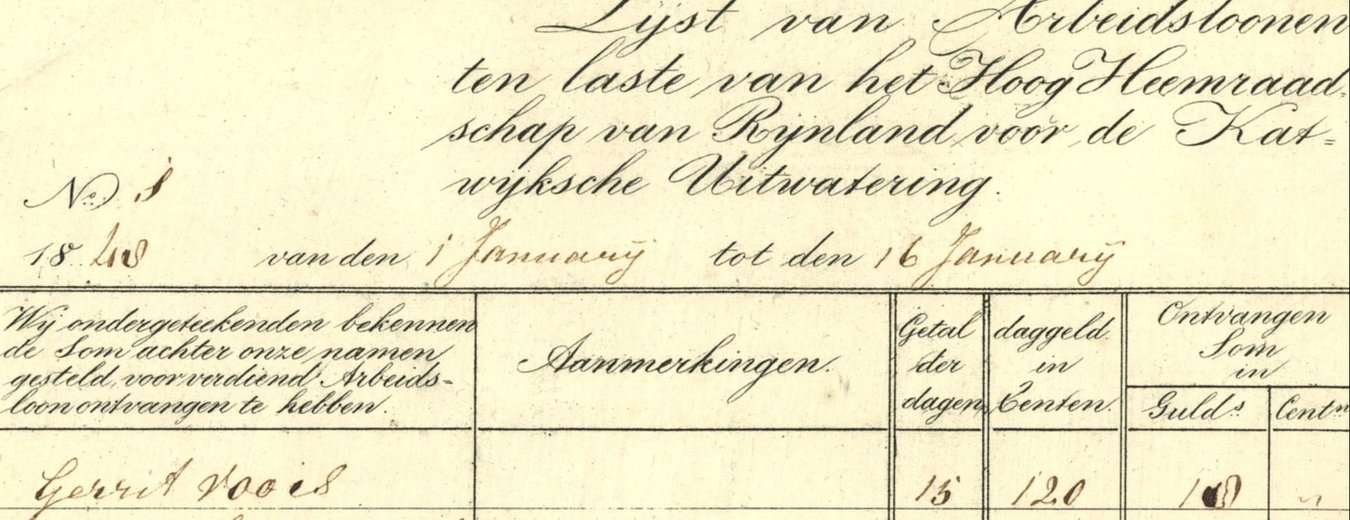 Lijst van Arbeidsloonen
ten laste van het Hoog Heemraad-
schap van Rynland voor de Kat-
wyksche Uitwatering.
No. 1
1848 van den 1 Januarij tot den 16 Januarij
Wy ondergeteekenden bekennen
de Som achter onze namen
gesteld, voor verdiend Arbeids-
loon ontvangen te hebben.
Aanmerkingen.
Getal
der
dagen
daggeld
in
Centen.
Ontvangen
Som
in
Guld.s
Centn
Gerrit Voois 15 120 18 "